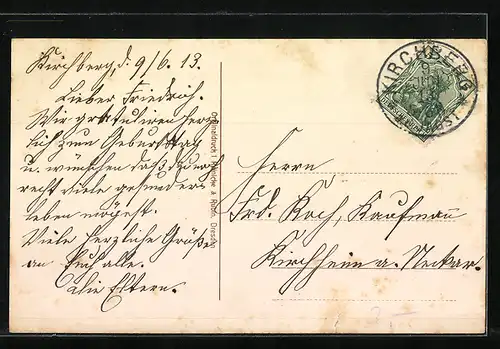 Kirchberg, d. 9/6. 13.
Lieber Friedrich.
Wir gratulieren herz
lich zum Geburtstag
u. wünschen daß Du noch
recht viele gesund er-
leben mögest.
Viele herzliche Grüße
an Euch alle.
Die Eltern.
Originaldruck Reinicke & Rubin, Dresden
KIRCHBERG
Herrn
Frd. Koch, Kaufmann
Kirchheim a. Neckar.